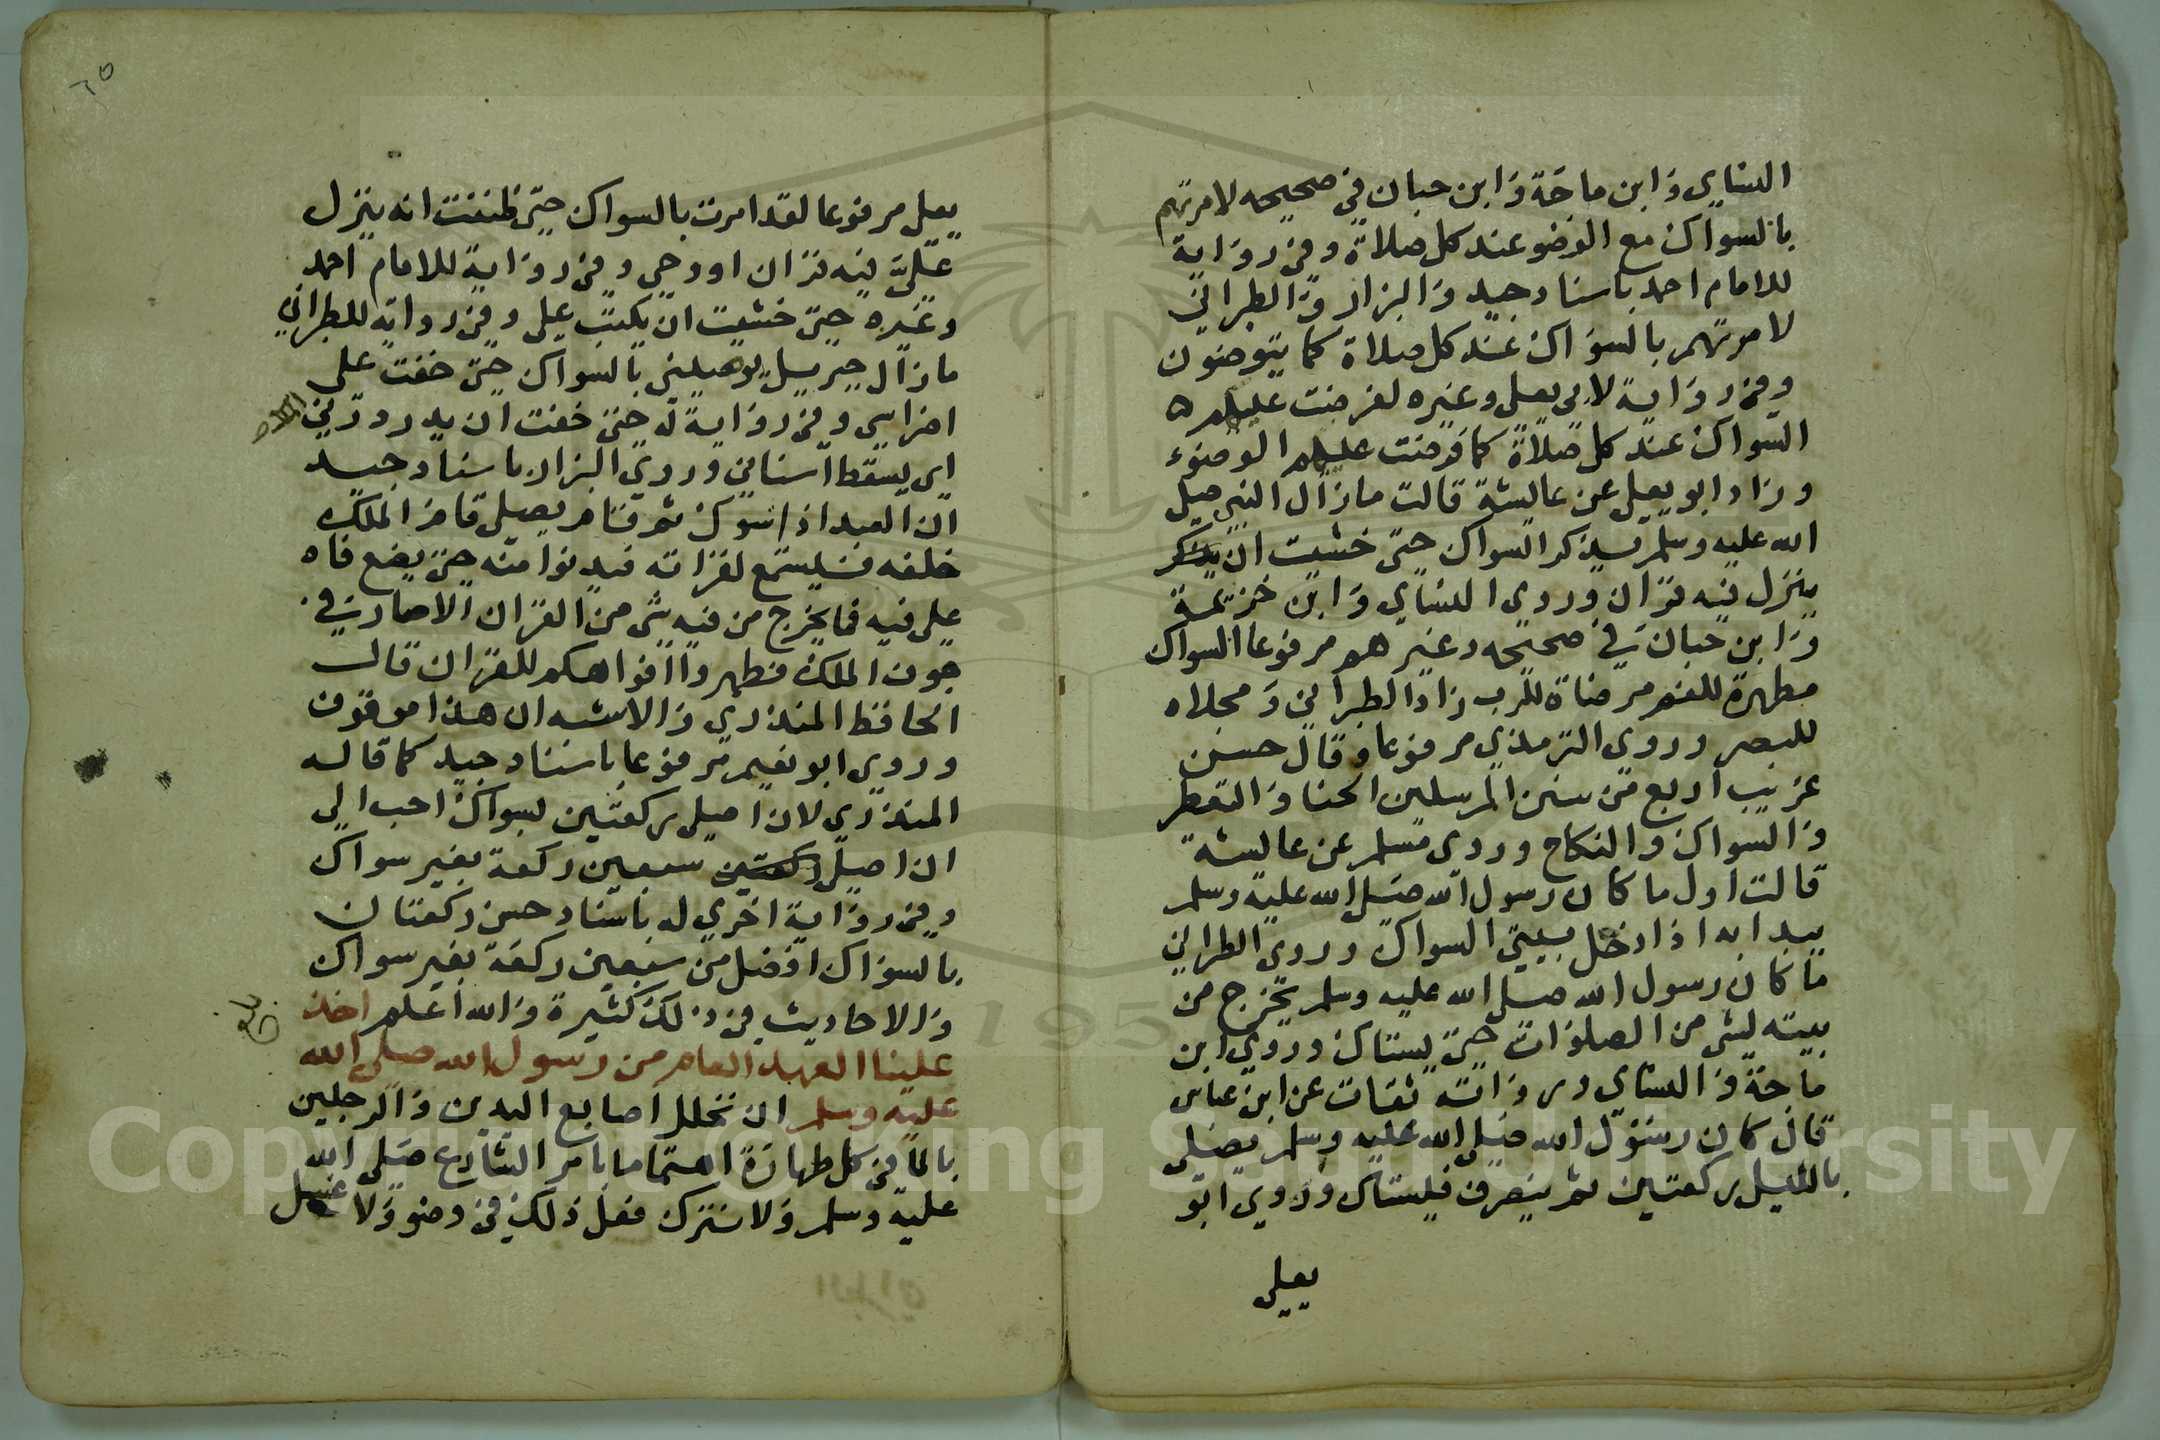 النساي وَابن ماجَة وَابن حبان في صحيحه لامرتهم
بالسواك مع الوضو عند كل صلاة وفي روَاية
للامام احمد باسناد جيد وَالبزار وَالطبراني
لامرتهم بالسوَاك عند كل صلاة كما يتوضون
وفي روَاية لابي يعلى وغيره لفرضت عليهم
السواك عند كل صلاة كما فرضت عليهم الوضوء
وزاد ابو يعلى عن عايشة قالت مازال النبي صلى
الله عليه وسلم يذكر السواك حتى خشيت ان
ينزل فيه قران وروى النساي وَابن خزيمة
وَابن حبان في صحيحه وغيرهم مرفوعا السواك
مطهرة للفم مرضاة للرب زاد الطبراني وَمجلاه
للبصر وروى الترمذي مرفوعا وقال حسن
غريب اربع من سنن المرسلين الحنا وَالتعطر
وَالسواك والنكاح وروى مسلم عن عايشة
قالت اول ما كان رسول الله صلى الله عليه وسلم
يبدا به اذا دخل بيتي السواك وروى الطبراني
ما كان رسول الله صلى الله عليه وسلم يخرج من
بيته لشي من الصلوَات حتى يستاك وروى ابن
ماجَة وَالنساي وروَاته ثقات عن ابن عباس
قال كان رسوُل الله صلى الله عليه وسلم يصلي
بالليل ركعتين ثم ينصرف فليستاك وروي ابو
يعلى
٦٥
يعلى مرفوعا لقد امرت بالسواك حتى ظننت انه ينزل
عليَّ فيه قران او وحي وفي روَاية للامام احمد
وغيره حتى خشيت ان يكتب علي وفي رواية للطبراني
مازال جبريل يوصيني بالسواك حتى خفت على
اضراسي وفي روَاية له حتى خفت ان يدردرني
اي يسقط اسناني وروي البزار باسناد جيد
ان العبد اذا تسوك ثم قام يصلي قام الملك
خلفه فيستمع لقراته فيدنوا منه حتى يضع فاه
على فيه فما يخرج من فيه شي من القران الاصار في
جوف الملك فطهروا افواهكم للقران قال
الحافظ المنذري وَالاشبه ان هذا موقوف
وروي ابو نعيم مرفوعا باسناد جيد كما قاله
المنذري لان اصلى ركعتين بسواك احب الي
ان اصلي ركعتين سبعين ركعة بغير سواك
وفي روَاية اخري له باسناد حسن ركعتان
بالسوَاك افضل من سبعين ركعة بغير سواك
وَالاحاديث في ذلك كثيرة وَالله اعلم اخذ
علينا العهد العام من رسول الله صلى الله
عليه وسلم ان نخلل اصابع اليدين وَالرجلين
بالما في كل طهارَة اهتماما بامر الشارع صَلى الله
عليه وسلم وَلا نترك فعل ذلك في وضو وَلا غسل